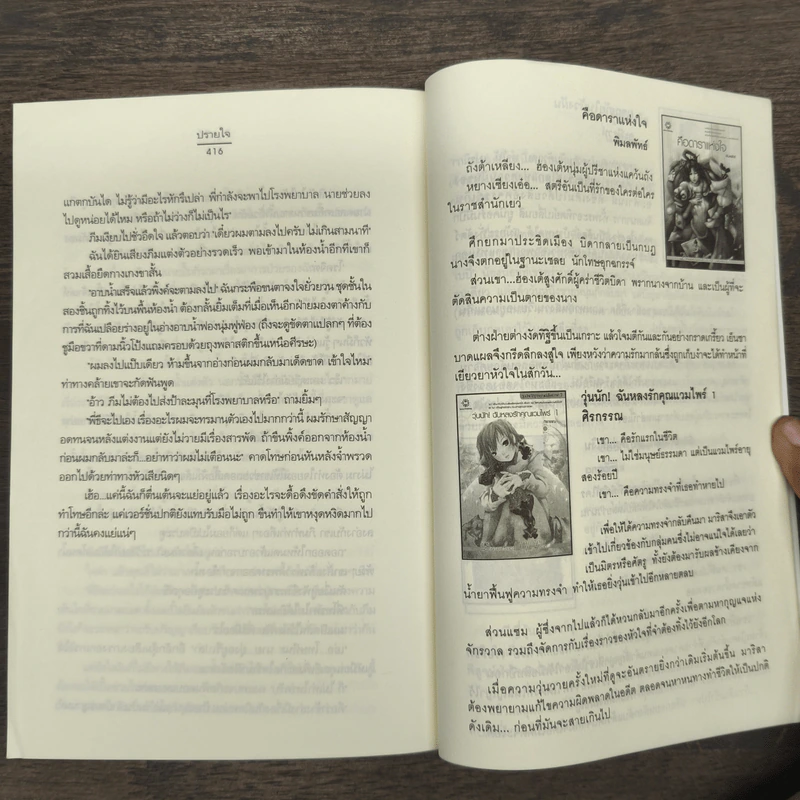 ปรายใจ
416
แกตกบันได ไม่รู้ว่ามีอะไรหักรึเปล่า พี่กำลังจะพาไปโรงพยาบาล นายช่วยลง
ไปดูหน่อยได้ไหม หรือถ้าไม่ว่างก็ไม่เป็นไร"
ภีมเงียบไปชั่วอึดใจ แล้วตอบว่า "เดี๋ยวผมตามลงไปครับ ไม่เกินสามนาที"
ฉันได้ยินเสียงภีมแต่งตัวอย่างรวดเร็ว พอเข้ามาในห้องน้ำอีกทีเขาก็
สวมเสื้อยืดกางเกงขาสั้น
"อาบน้ำเสร็จแล้วพิงค์จะตามลงไป" ฉันกระพือขนตาจงใจยั่วยวน ชุดชั้นใน
สองชิ้นถูกทิ้งไว้บนพื้นห้องน้ำ ต้องกลั้นยิ้มเต็มที่เมื่อเห็นอีกฝ่ายมองตาค้างกับ
การที่ฉันเปลือยร่างอยู่ในอ่างอาบน้ำฟองนุ่มฟูฟ่อง (ถึงจะดูขัดตาแปลกๆ ที่ต้อง
ชูมือขวาที่ดามนิ้วโป้งแถมครอบด้วยถุงพลาสติกขึ้นเหนือศีรษะ)
"ผมลงไปแป๊บเดียว ห้ามขึ้นจากอ่างก่อนผมกลับมาเด็ดขาด เข้าใจไหม"
ท่าทางคล้ายเขาจะกัดฟันพูด
"อ้าว ภีมไม่ต้องไปส่งป้าละมุนที่โรงพยาบาลหรือ" ถามยิ้มๆ
"พี่ซีจะไปเอง เรื่องอะไรผมจะทรมานตัวเองไปมากกว่านี้ ผมรักษาสัญญา
อดทนจนหลังแต่งงานแต่ยังไม่วายมีเรื่องสารพัด ถ้าขืนพิงค์ออกจากห้องน้ำ
ก่อนผมกลับมาล่ะก็...อย่าหาว่าผมไม่เตือนนะ" คาดโทษก่อนหันหลังจ้ำพรวด
ออกไปด้วยท่าทางหัวเสียนิดๆ
เฮ้อ...แค่นี้ฉันก็ตื่นเต้นจะแย่อยู่แล้ว เรื่องอะไรจะดื้อดึงขัดคำสั่งให้ถูก
ทำโทษอีกล่ะ แค่เวอร์ชั่นปกติยังแทบรับมือไม่ถูก ขืนทำให้เขาหงุดหงิดมากไป
กว่านี้ฉันคงแย่แน่ๆ
คือดาราแห่งใจ
พิมลพัทธ์
ถังต้าเหลียง... ฮ่องเต้หนุ่มผู้ปรีชาแห่งแคว้นถัง
หยางเซียงเอ๋อ... สตรีอันเป็นที่รักของใครต่อใคร
ในราชสำนักเยว่
ศึกยกมาประชิดเมือง บิดากลายเป็นกบฏ
นางจึงตกอยู่ในฐานะเชลย นักโทษอุกฉกรรจ์
ส่วนเขา...ฮ่องเต้สูงศักดิ์ผู้คร่าชีวิตบิดา พรากนางจากบ้าน และเป็นผู้ที่จะ
ตัดสินความเป็นตายของนาง
ต่างฝ่ายต่างงัดทิฐิขึ้นเป็นเกราะ แล้วโจมตีกันและกันอย่างกราดเกรี้ยว เย็นชา
บาดแผลจึงกรีดลึกลงสู่ใจ เพียงหวังว่าความรักมากล้นซึ่งถูกเก็บงำจะได้ทำหน้าที่
เยียวยาหัวใจในสักวัน...
คือดาราแห่งใจ
วุ่นนัก! ฉันหลงรักคุณแวมไพร์ 1
วุ่นนัก! ฉันหลงรักคุณแวมไพร์ 1
ศิรกรรณ
เขา... คือรักแรกในชีวิต
เขา... ไม่ใช่มนุษย์ธรรมดา แต่เป็นแวมไพร์อายุ
สองร้อยปี
เขา... คือความทรงจำที่เธอทำหายไป
เพื่อให้ได้ความทรงจำกลับคืนมา มาริสาจึงเอาตัว
เข้าไปเกี่ยวข้องกับกลุ่มคนซึ่งไม่อาจแน่ใจได้เลยว่า
เป็นมิตรหรือศัตรู ทั้งยังต้องมารับผลข้างเคียงจาก
น้ำยาฟื้นฟูความทรงจำ ทำให้เธอยิ่งวุ่นเข้าไปอีกหลายตลบ
ส่วนแซม ผู้ซึ่งจากไปแล้วก็ได้หวนกลับมาอีกครั้งเพื่อตามหากุญแจแห่ง
จักรวาล รวมถึงจัดการกับเรื่องราวของหัวใจที่จำต้องทิ้งไว้ยังอีกโลก
เมื่อความวุ่นวายครั้งใหม่ที่ดูจะอันตรายยิ่งกว่าเดิมเริ่มต้นขึ้น มาริสา
ต้องพยายามแก้ไขความผิดพลาดในอดีต ตลอดจนหาหนทางทำชีวิตให้เป็นปกติ
ดังเดิม... ก่อนที่มันจะสายเกินไป